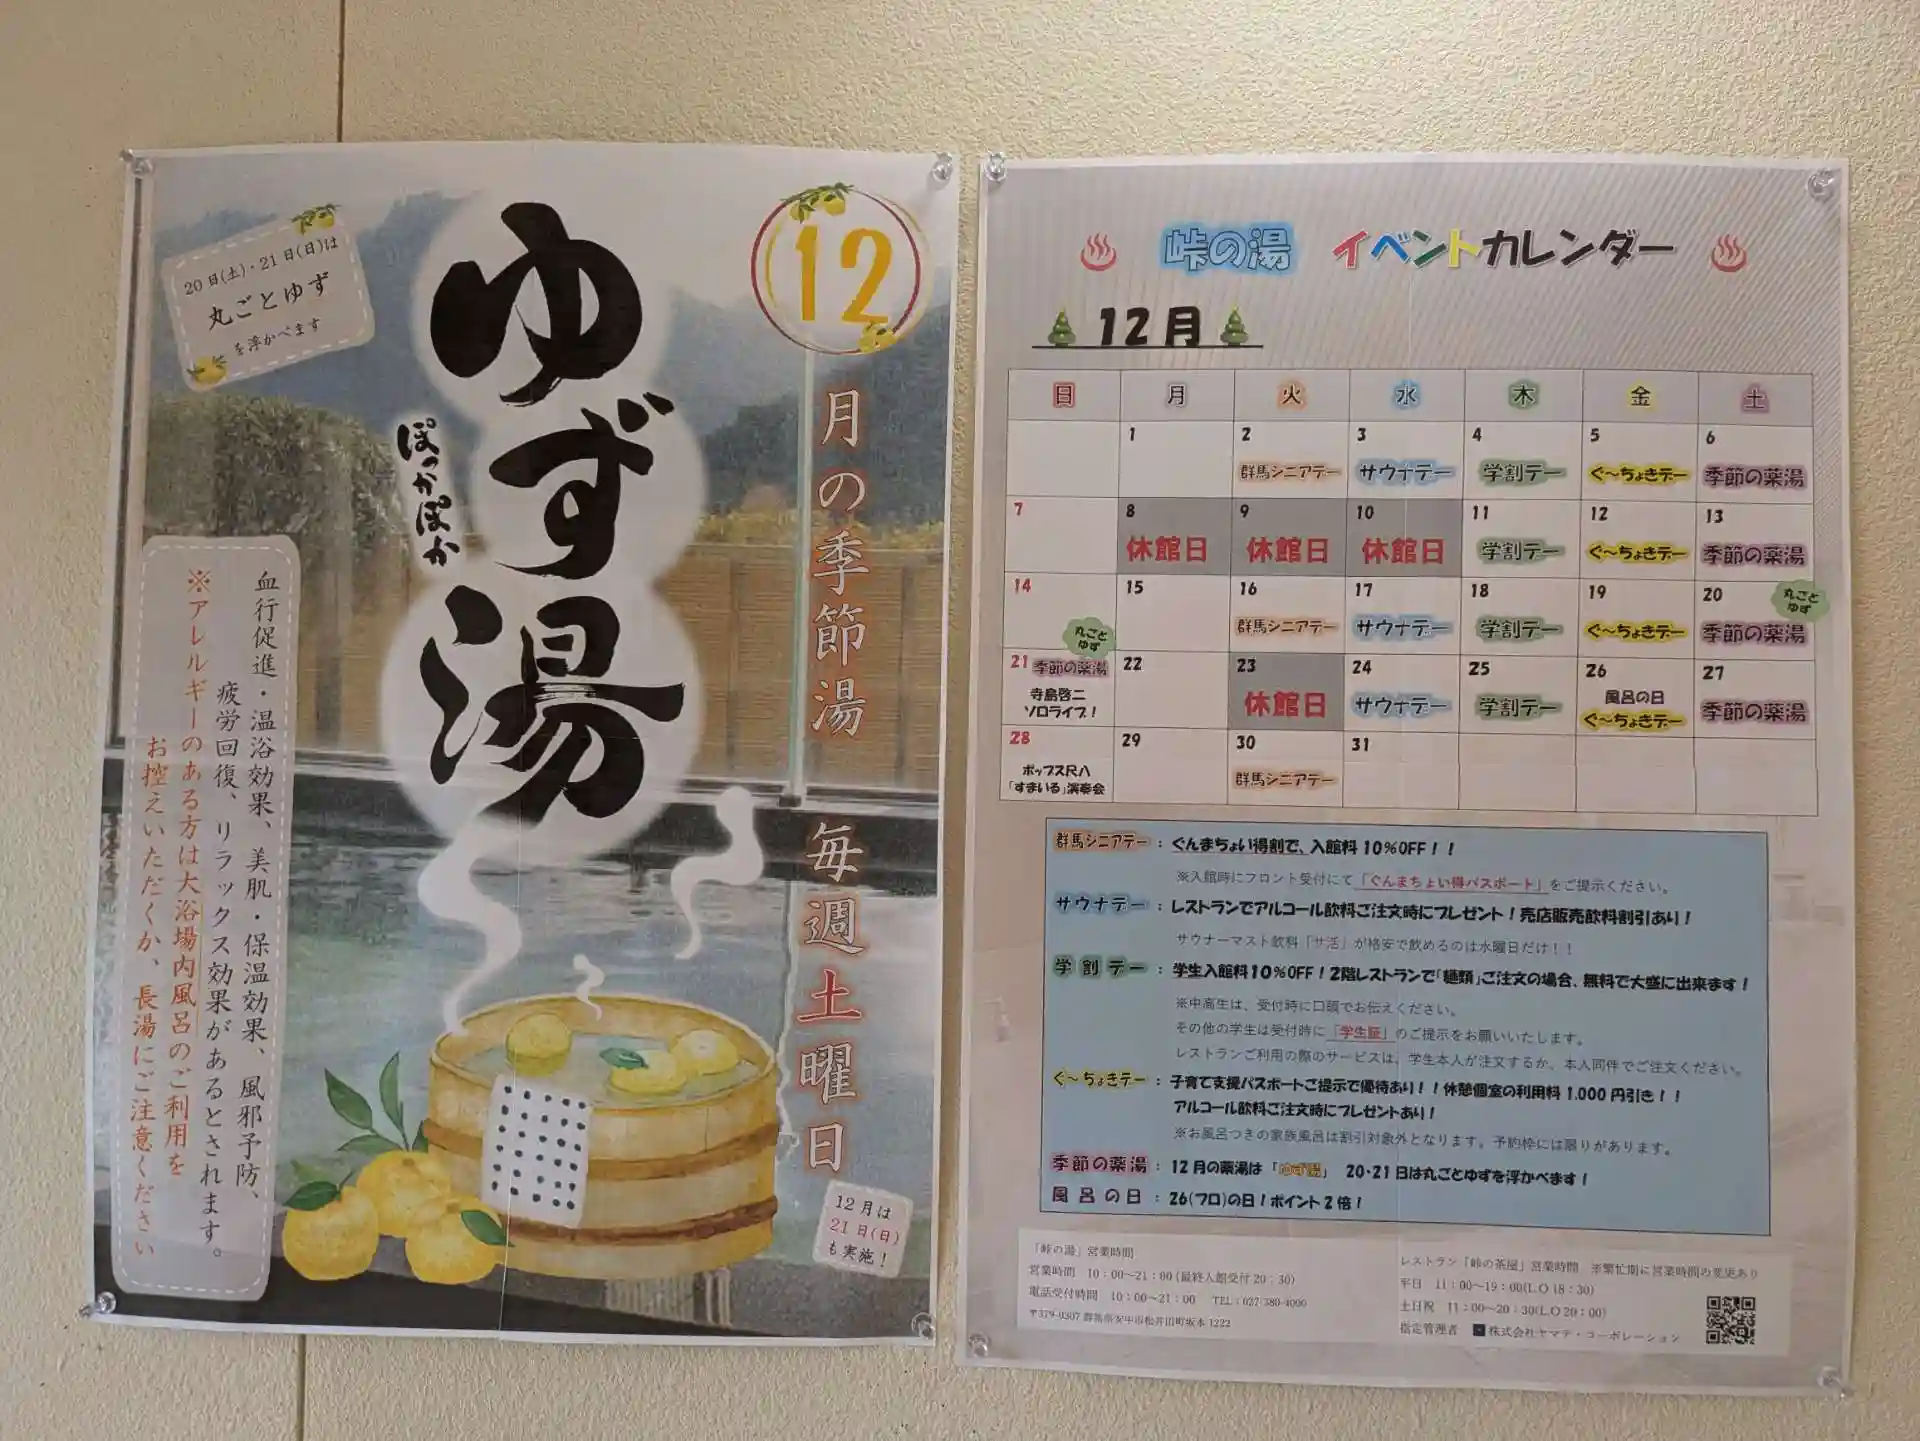 20日(土)・21日(日)は
丸ごとゆず
を浮かべます
ゆず湯
ぽっかぽか
12
月の季節湯 毎週土曜日
12月は
21日(日)
も実施!
血行促進・温浴効果、美肌・保温効果、風邪予防、
疲労回復、リラックス効果があるとされます。
※アレルギーのある方は大浴場内風呂のご利用を
お控えいただくか、長湯にご注意ください
峠の湯 イベントカレンダー
12月
日 月 火 水 木 金 土
1 2 3 4 5 6
群馬シニアデー サウナデー 学割デー ぐ〜ちょきデー 季節の薬湯
7 8 9 10 11 12 13
休館日 休館日 休館日 学割デー ぐ〜ちょきデー 季節の薬湯
14 15 16 17 18 19 20
丸ごと
ゆず
群馬シニアデー サウナデー 学割デー ぐ〜ちょきデー 季節の薬湯
丸ごと
ゆず
21 季節の薬湯 22 23 24 25 26 27
寺島啓二
ソロライブ!
休館日 サウナデー 学割デー 風呂の日
ぐ〜ちょきデー 季節の薬湯
28 29 30 31
ポップス尺八
「すまいる」演奏会
群馬シニアデー
群馬シニアデー:ぐんまちょい得割で、入館料10%OFF!!
※入館時にフロント受付にて「ぐんまちょい得パスポート」をご提示ください。
サウナデー:レストランでアルコール飲料ご注文時にプレゼント!売店販売飲料割引あり!
サウナーマスト飲料「サ活」が格安で飲めるのは水曜日だけ!!
学割デー:学生入館料10%OFF!2階レストランで「麺類」ご注文の場合、無料で大盛に出来ます!
※中高生は、受付時に口頭でお伝えください。
その他の学生は受付時に「学生証」のご提示をお願いいたします。
レストランご利用の際のサービスは、学生本人が注文するか、本人同伴でご注文ください。
ぐ〜ちょきデー:子育て支援パスポートご提示で優待あり!!休憩個室の利用料1,000円引き!!
アルコール飲料ご注文時にプレゼントあり!
※お風呂つきの家族風呂は割引対象外となります。予約枠には限りがあります。
季節の薬湯:12月の薬湯は「ゆず湯」 20・21日は丸ごとゆずを浮かべます!
風呂の日:26(フロ)の日!ポイント2倍!
「峠の湯」営業時間
営業時間 10:00〜21:00(最終入館受付20:30)
電話受付時間 10:00〜21:00 TEL:027-380-4000
〒379-0307 群馬県安中市松井田町坂本1222
レストラン「峠の茶屋」営業時間 ※繁忙期に営業時間の変更あり
平日 11:00〜19:00(L.O 18:30)
土日祝 11:00〜20:30(L.O 20:00)
指定管理者 株式会社ヤマテ・コーポレーション